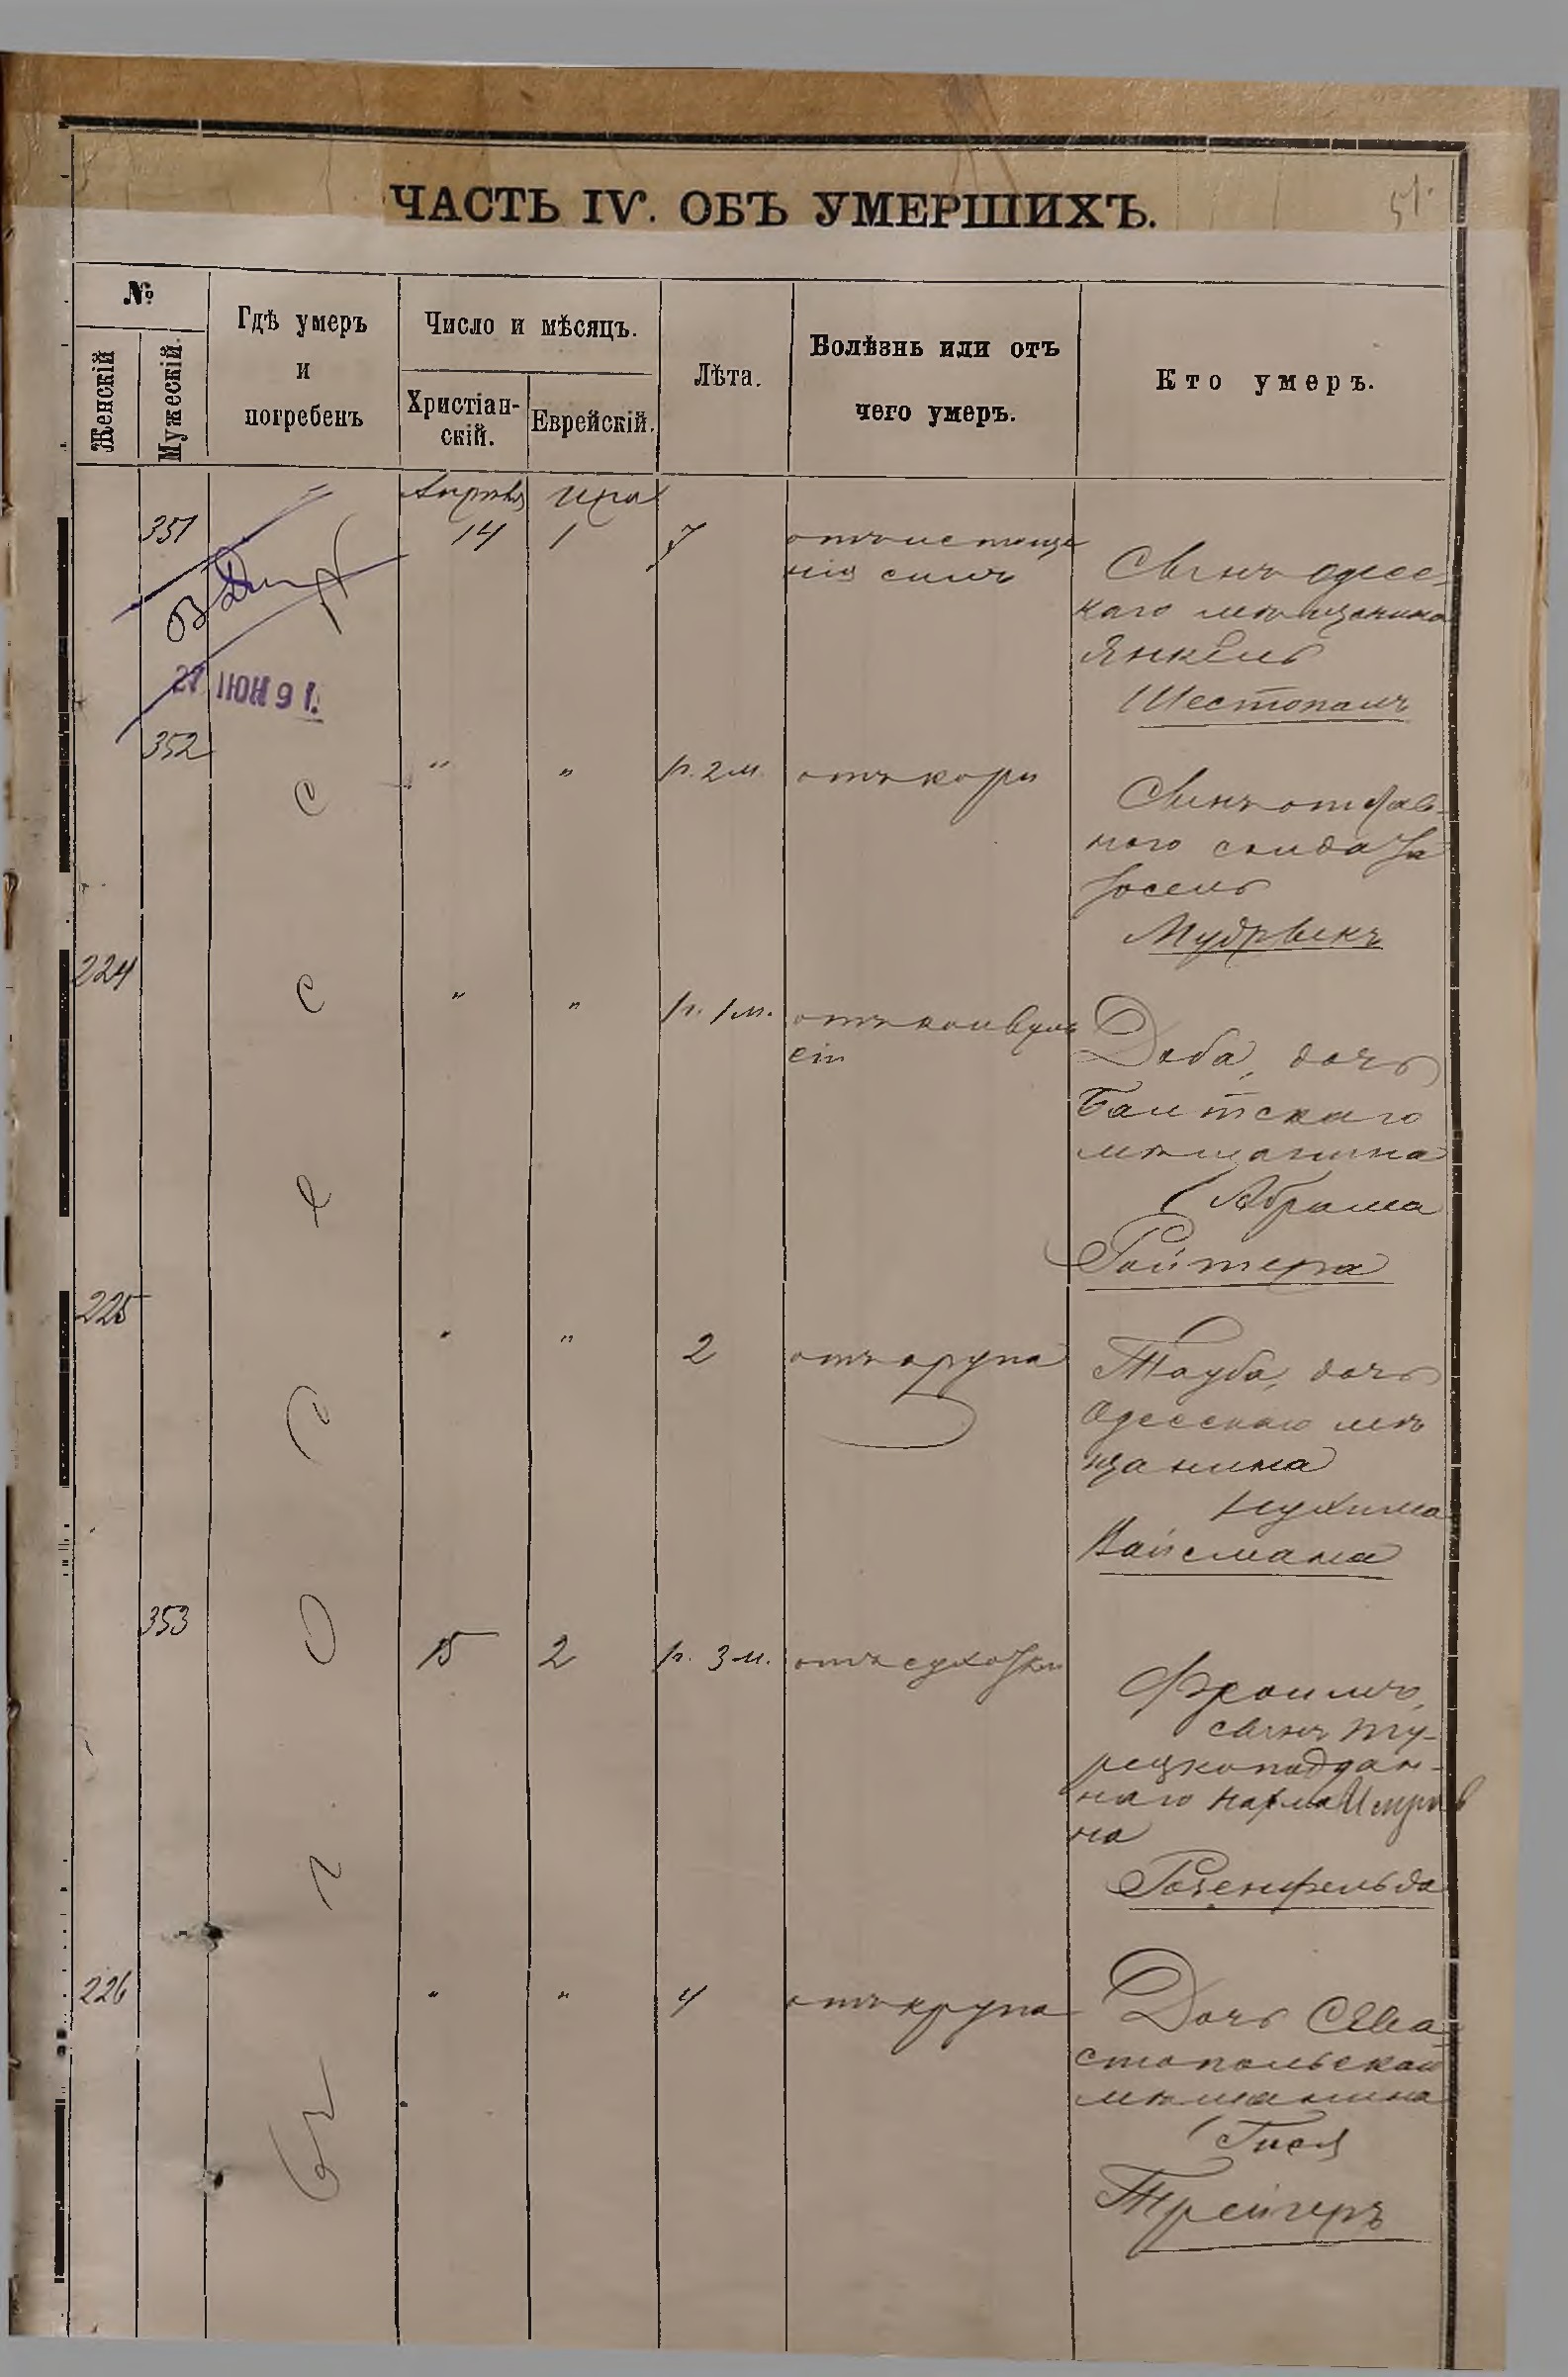 ЧАСТЬ IV. ОБЪ УМЕРШИХЪ.
51.
№
Женскій
Мужескій.
Гдѣ умеръ
и
погребенъ
Число и мѣсяцъ.
Христіан-
скій.
Еврейскій.
Лѣта.
Болѣзнь или отъ
чего умеръ.
Кто умеръ.
Апрѣля Ира
351 14 1 7 отъ истоще
нія силъ
Сынъ одесс-
каго мѣщанина
Янкель
Шестопалъ
27 ІЮН 91.
352 " " 1г. 2м. отъ кори
Сынъ отстав-
ного солдата
Іосель
Мудрыкъ
224 " " 1г. 1м. отъ конвуль
сіи
Доба, дочь
Балтскаго
мѣщанина
Абрама
Ройтера
225 " " 2 отъ крупа
Тауба, дочь
Одесскаго мѣ
щанина
Нухима
Вайсмана
353 15 2 1г. 3м. отъ сухотки
Фроимъ,
сынъ ту-
рецкоподдан-
наго
на
Розенфельда
226 " " 4 отъ крупа
Дочь Сева
стопольскаго
мѣщанина
Гися
Трейгеръ